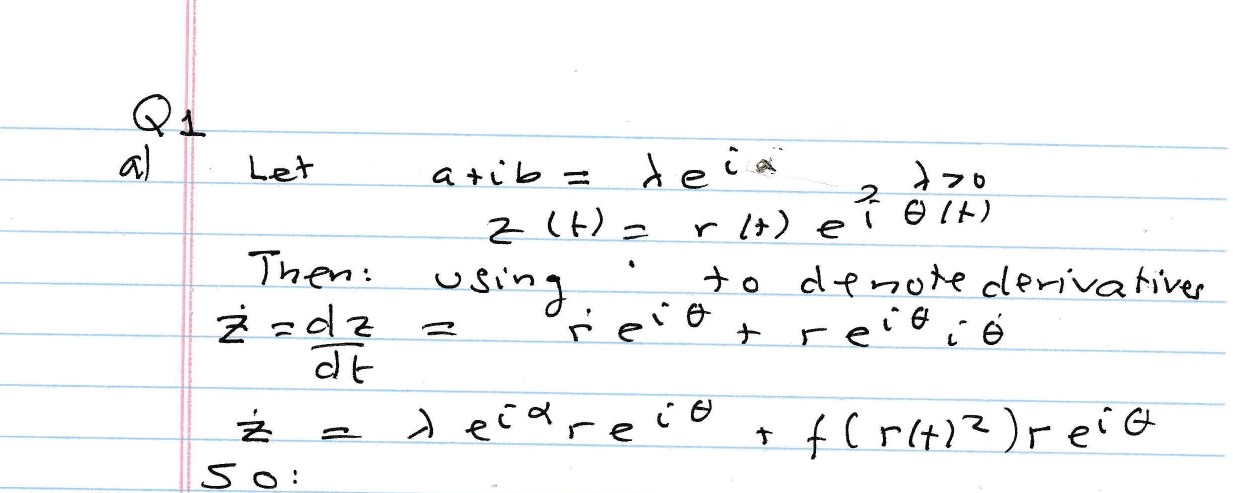 Q1
a) Let a+ib = λe^{iα}, λ>0
z(t) = r(t) e^{iθ(t)}
Then: using ˙ to denote derivatives
ż = dz/dt = ṙe^{iθ} + re^{iθ}iθ̇
ż = λe^{iα}re^{iθ} + f(r(t)²)re^{iθ}
So: